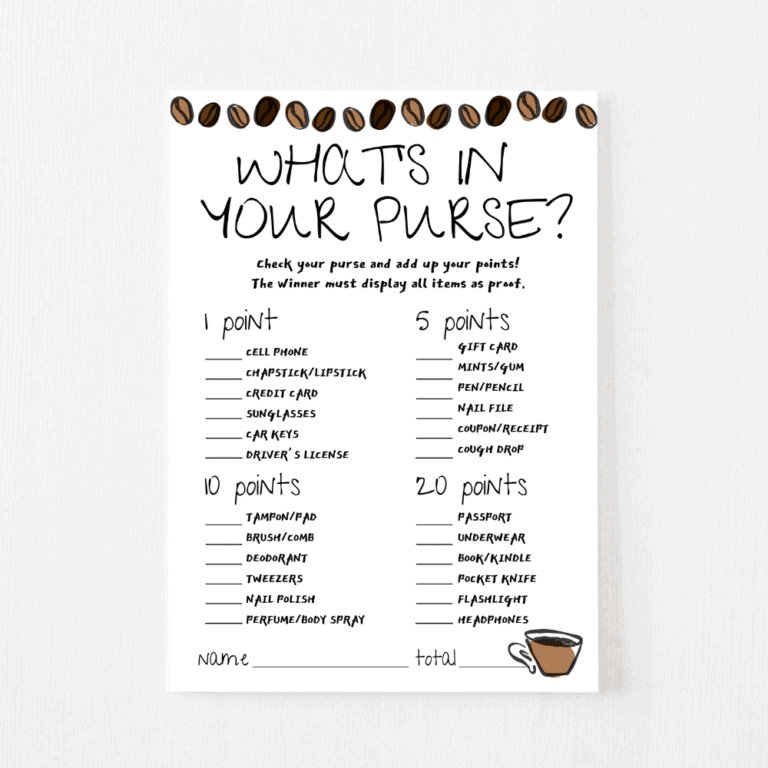 WHAT'S IN
YOUR PURSE?
Check your purse and add up your points!
The Winner must display all items as proof.
1 point
CELL PHONE
CHAPSTICK/LIPSTICK
CREDIT CARD
SUNGLASSES
CAR KEYS
DRIVER'S LICENSE
5 points
GIFT CARD
MINTS/GUM
PEN/PENCIL
NAIL FILE
COUPON/RECEIPT
COUGH DROP
10 points
TAMPON/PAD
BRUSH/COMB
DEODORANT
TWEEZERS
NAIL POLISH
PERFUME/BODY SPRAY
20 points
PASSPORT
UNDERWEAR
BOOK/KINDLE
POCKET KNIFE
FLASHLIGHT
HEADPHONES
name total